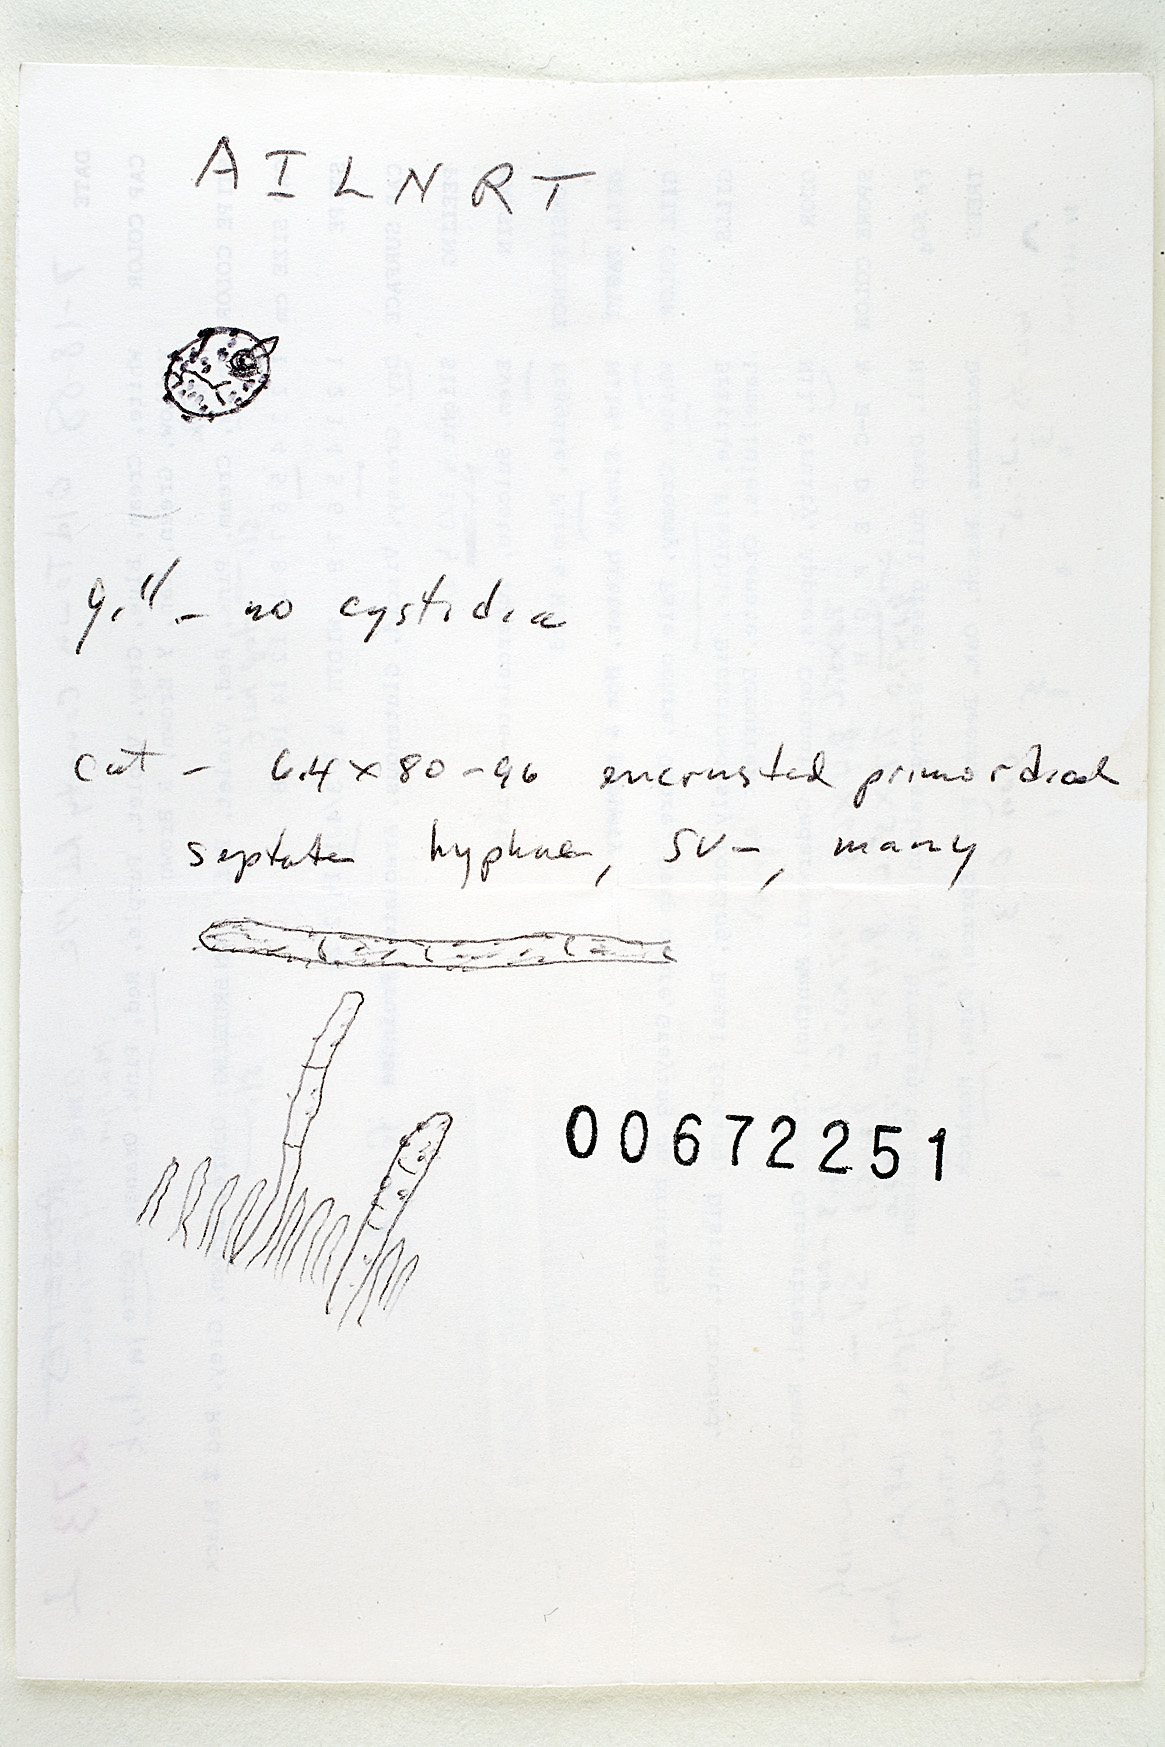 AILNRT
gill - no cystidia
cut - 6.4 x 80-96 encrusted primordial
septate hyphae, SV-, many
00672251